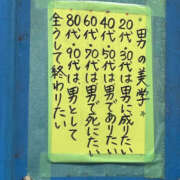 *男の美学*
20代・30代は男に成りたい
40代・50代は男でありたい
60代・70代は男で死にたい
80代・90代は男として
全うして終わりたい